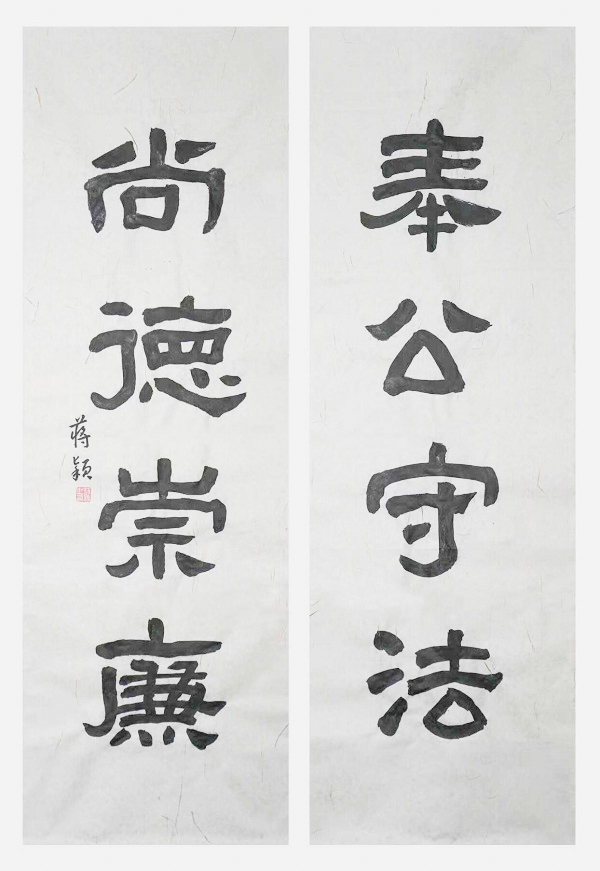 奉公守法
尚德崇廉
蒋颖